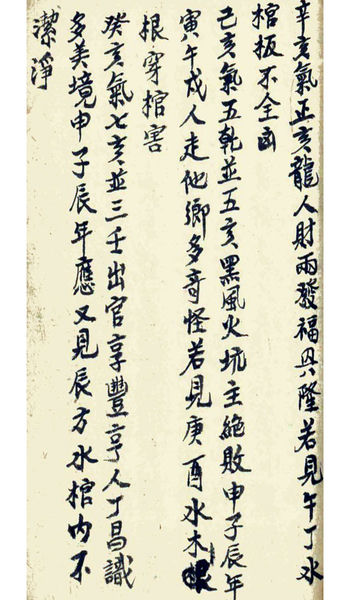 辛亥氣正亥龍人財兩發福興隆若見午丁水
棺板不全凶
己亥氣五乾並五亥黑風火坑主絶敗申子辰年
寅午戌人走他鄉多奇怪若見庚酉水木
根穿棺害
癸亥氣七亥並三壬出官享豐亨人丁昌識
多美境申子辰年應又見辰方水棺內不
潔淨